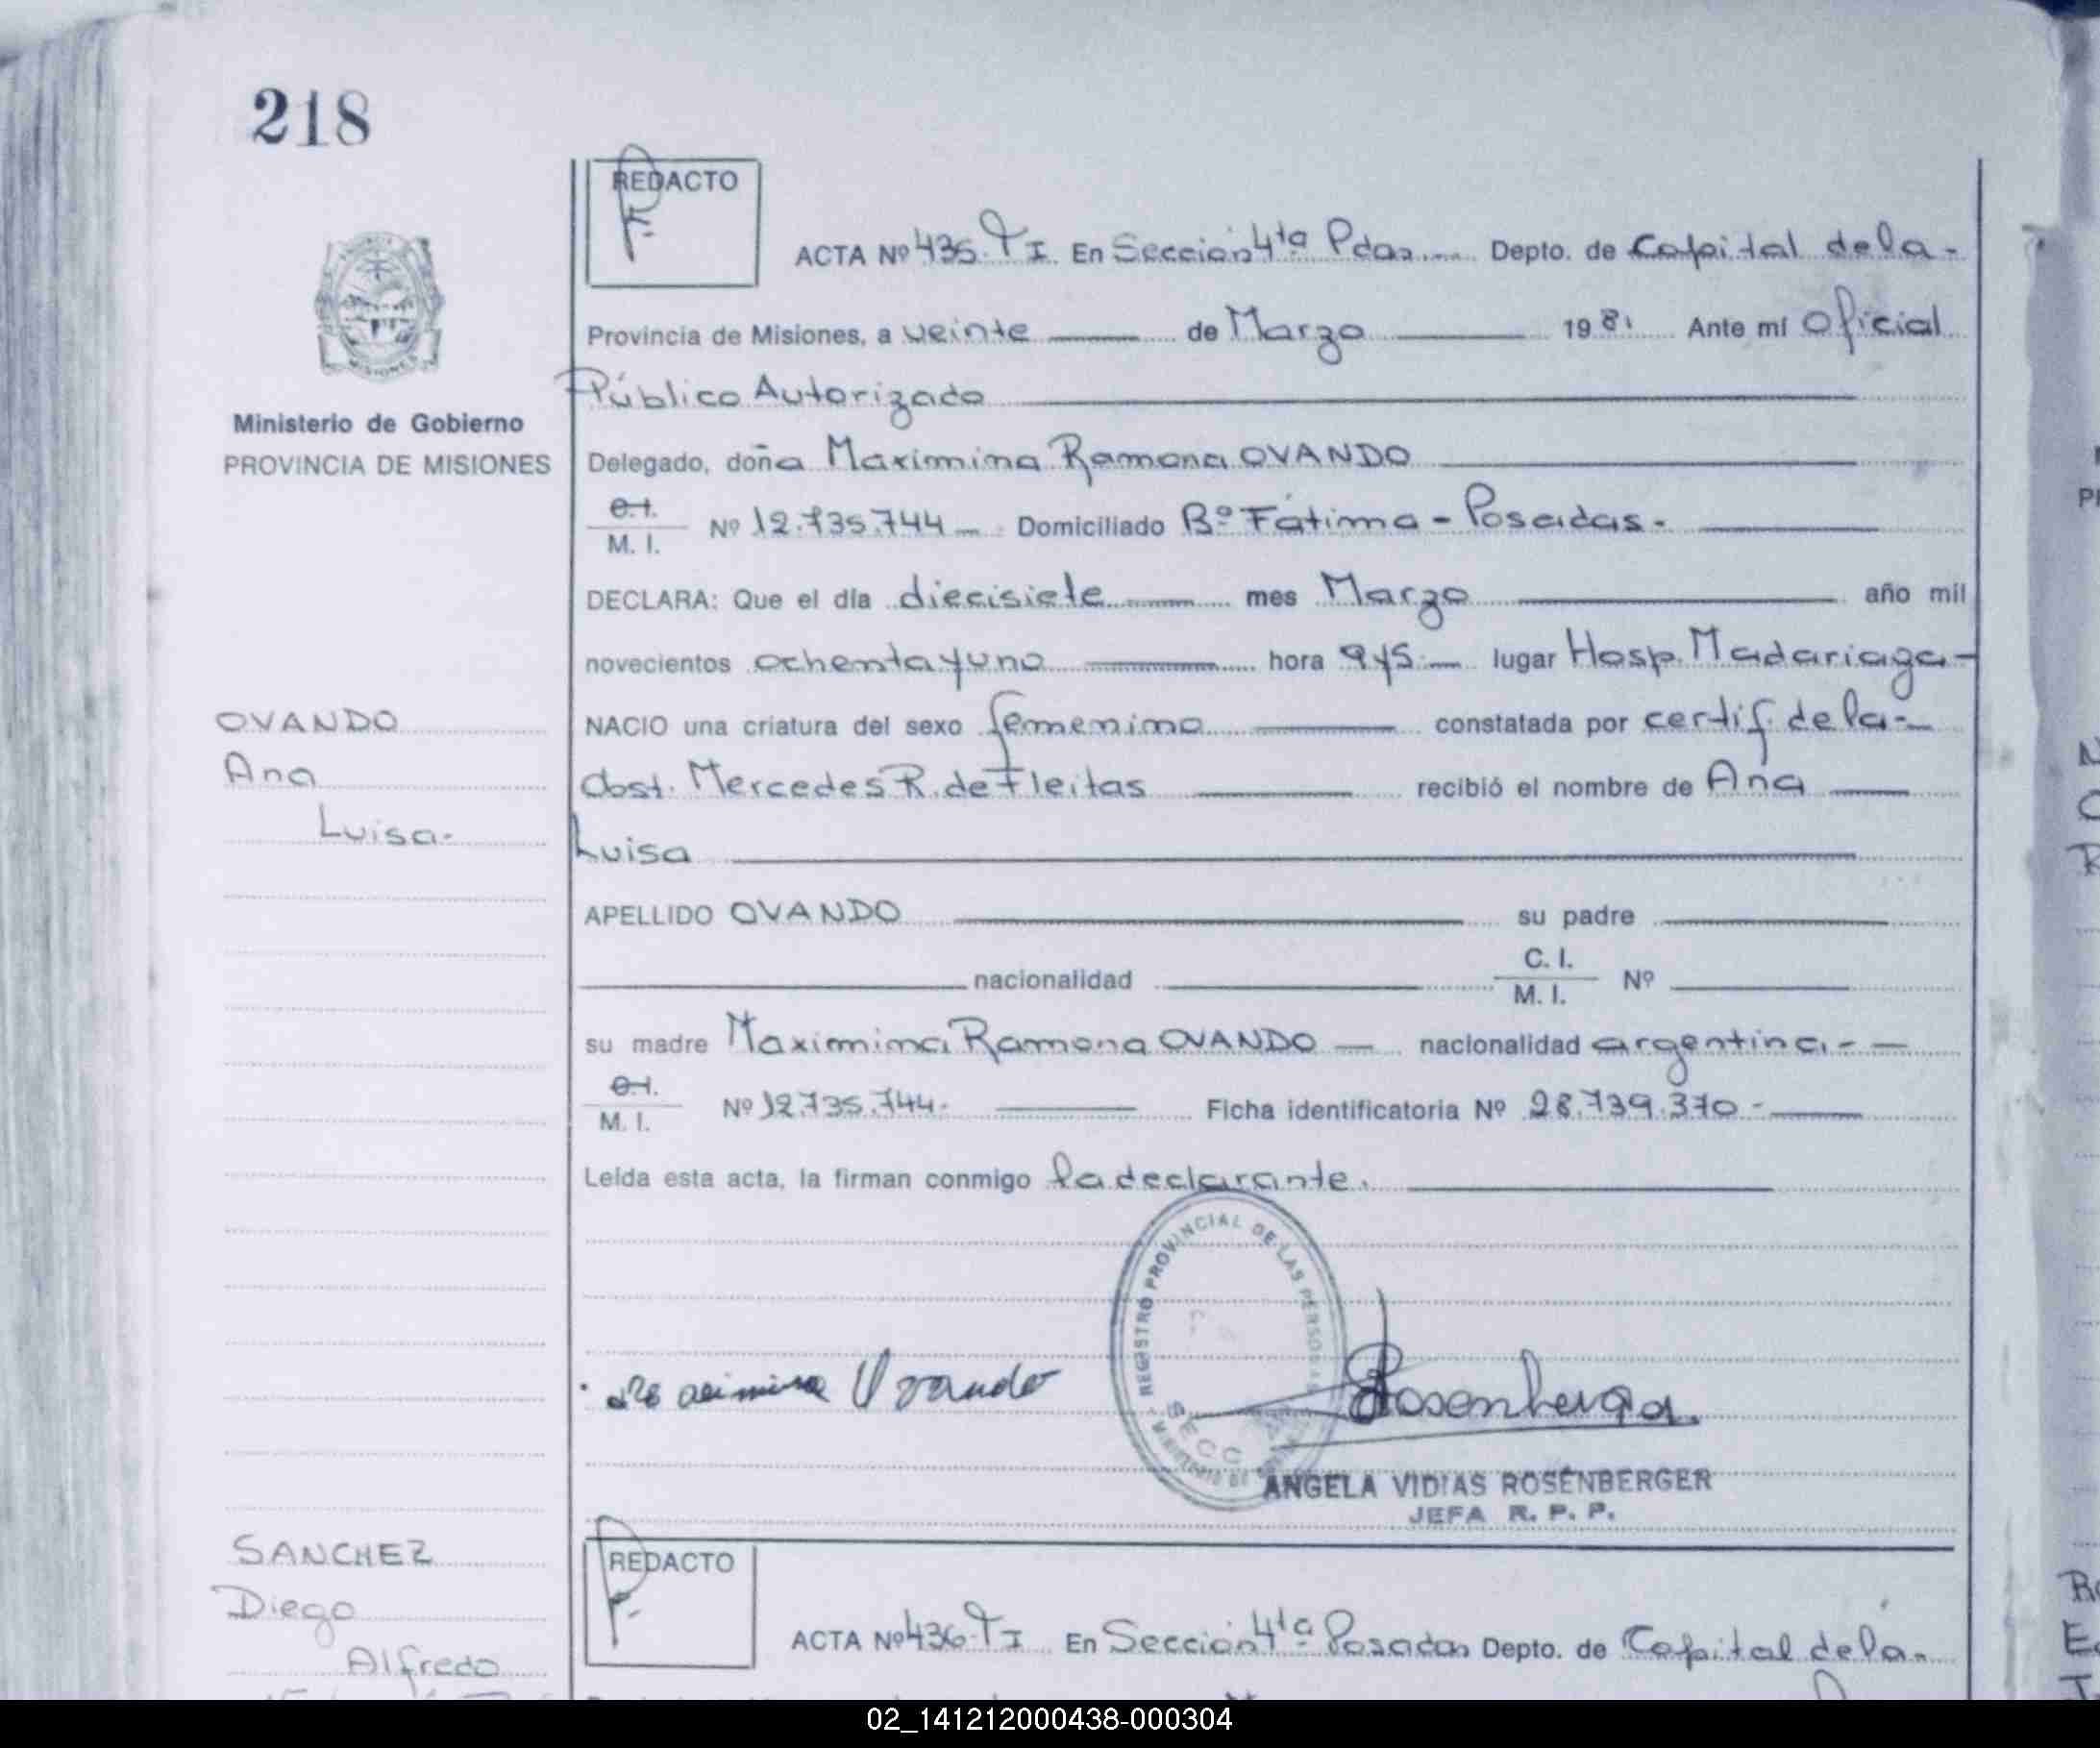 218
REDACTO
ACTA Nº 435. T I. En Sección 4ta Pdas. Depto. de Capital de la-
Provincia de Misiones, a veinte de Marzo 1981 Ante mí Oficial
Público Autorizado
Ministerio de Gobierno
PROVINCIA DE MISIONES
Delegado, doña Maximina Ramona OVANDO
C.I.
M. I. Nº 12.735.744 Domiciliado Bº Fátima - Posadas.
DECLARA: Que el día diecisiete mes Marzo año mil
novecientos ochenta y uno hora 9 y 5 lugar Hosp. Madariaga-
OVANDO
Ana
Luisa-
NACIO una criatura del sexo femenino constatada por certif. de la-
Obst. Mercedes R. de Fleitas recibió el nombre de Ana
Luisa
APELLIDO OVANDO su padre
nacionalidad C. I.
M. I. Nº
su madre Maximina Ramona OVANDO nacionalidad argentina.-
C.I.
M. I. Nº 12.735.744. Ficha identificatoria Nº 28.739.370-
Leída esta acta, la firman conmigo la declarante.
REGISTRO PROVINCIAL DE LAS PERSONAS
SECC
Ovando
Rosenberga
ANGELA VIDIAS ROSENBERGER
JEFA R. P. P.
SANCHEZ
Diego
Alfredo
REDACTO
ACTA Nº 436. T I En Sección 4ta Posadas Depto. de Capital de la-
02_141212000438-000304